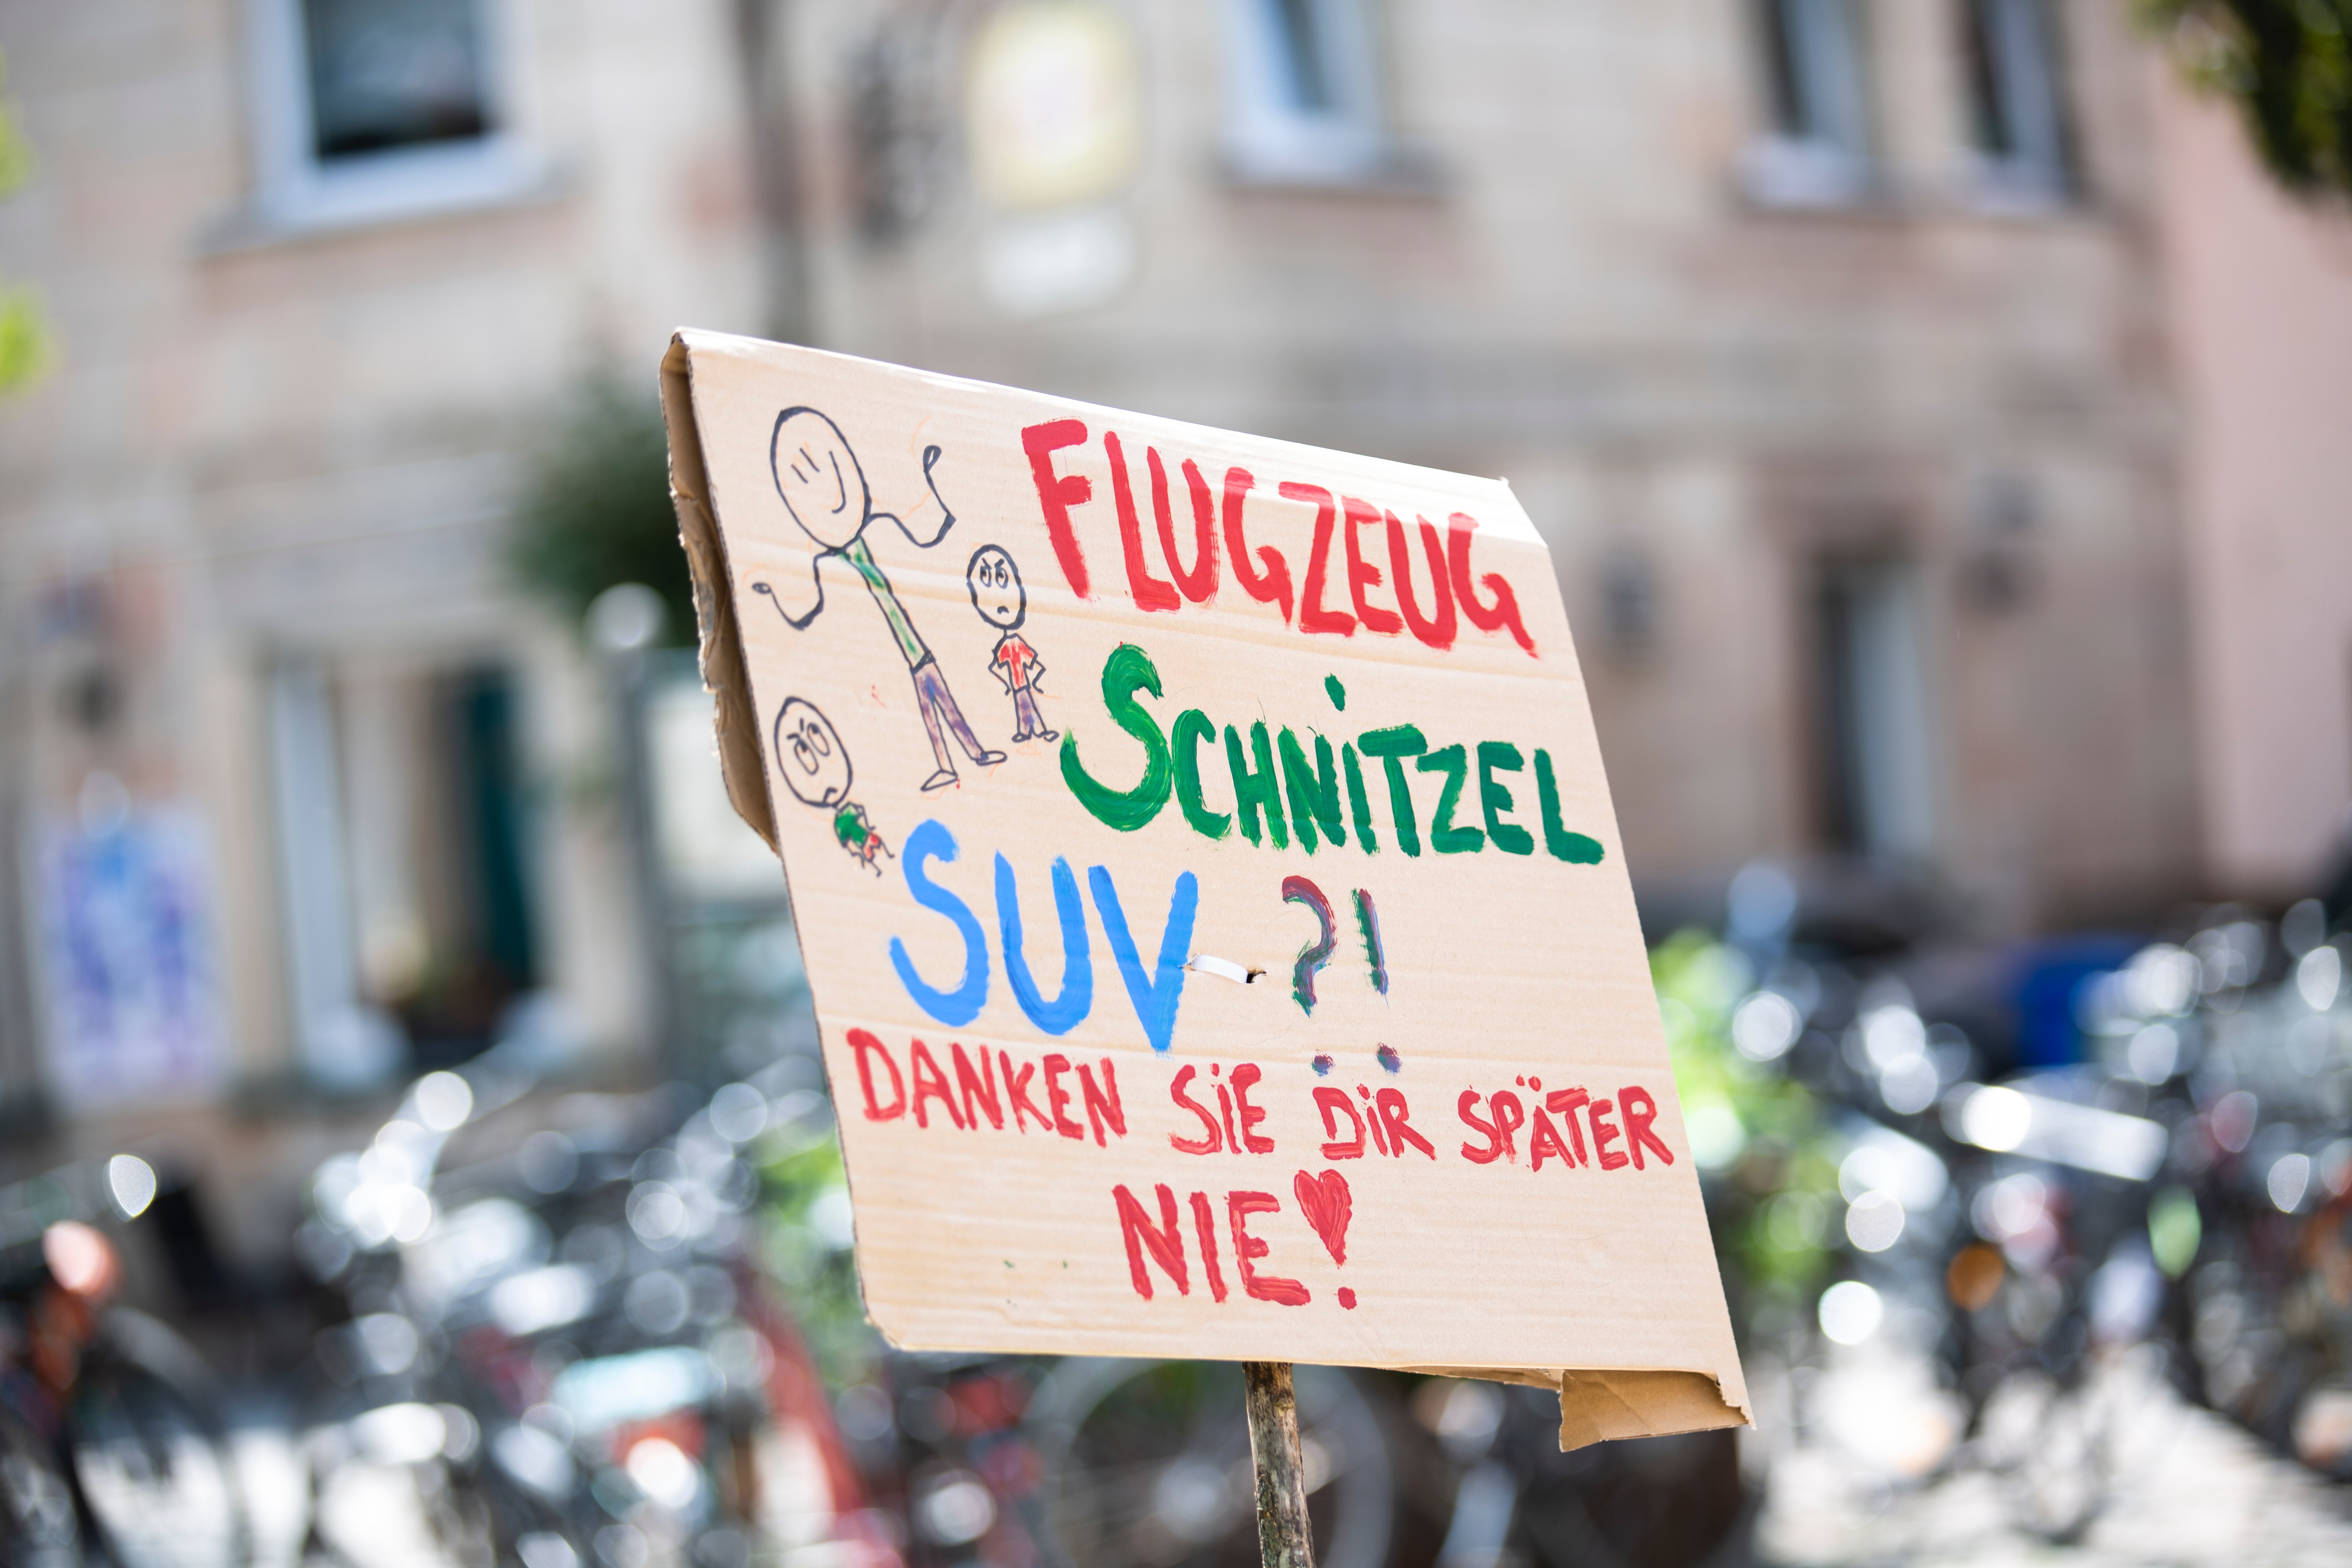 FLUGZEUG
SCHNiTZEL
SUV ?!
DANKEN SiE DiR SPÄTER
NIE!